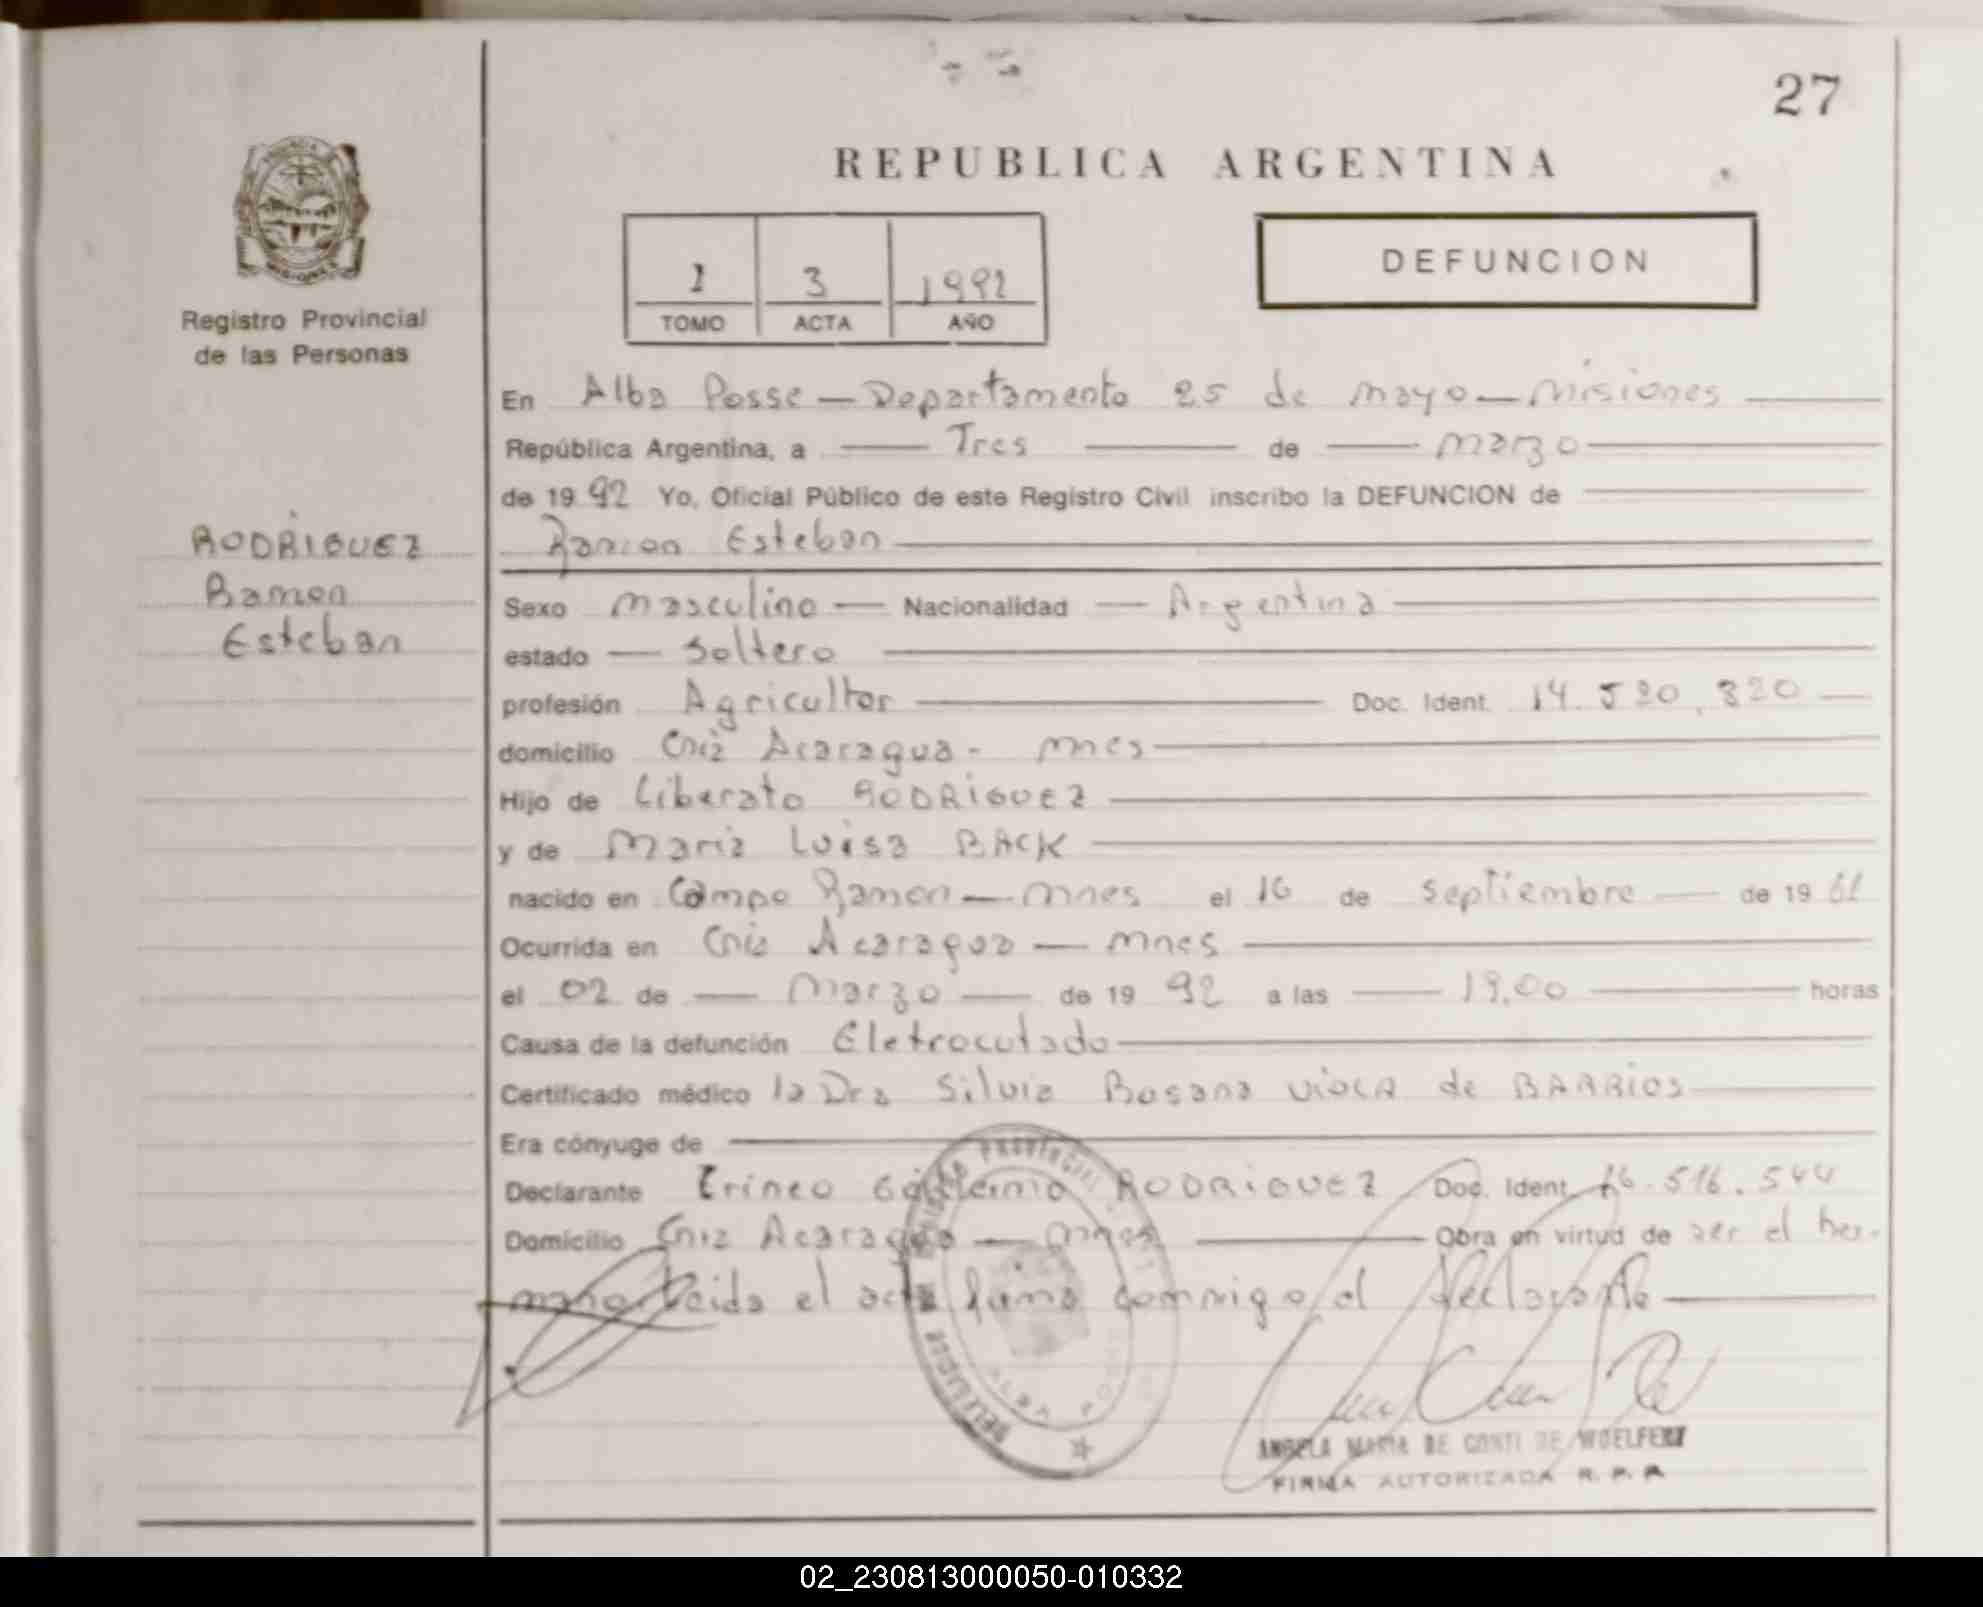 27
REPUBLICA ARGENTINA
Registro Provincial
de las Personas
1 3 1992
TOMO ACTA AÑO
DEFUNCION
En Alba Posse — Departamento 25 de mayo — misiones
República Argentina, a Tres de marzo
de 19 92 Yo, Oficial Público de este Registro Civil inscribo la DEFUNCION de
RODRIGUEZ
Ramon
Esteban
Ramon Esteban
Sexo masculino — Nacionalidad — Argentina
estado — Soltero
profesión Agricultor Doc. Ident. 14.520.820
domicilio Acaragua - mnes
Hijo de Liberato RODRIGUEZ
y de Maria Luisa BACK
nacido en Campo Ramon — mnes el 16 de Septiembre — de 19 61
Ocurrida en Acaragua — mnes
el 02 de — marzo — de 19 92 a las 19,00 horas
Causa de la defunción Eletrocutado
Certificado médico la Dra Silvia Rosana VIOLA de BARRIOS
Era cónyuge de
Declarante Irineo Guillermo RODRIGUEZ Doc. Ident. 16.516.544
Domicilio Acaragua — mnes Obra en virtud de ser el her-
mano. Leida el acta firma conmigo el declarante
REGISTRO PROVINCIAL
ALBA POSSE
ANGELA MARIA DE CONTI DE WOELFERT
FIRMA AUTORIZADA R. P. P.
02_230813000050-010332